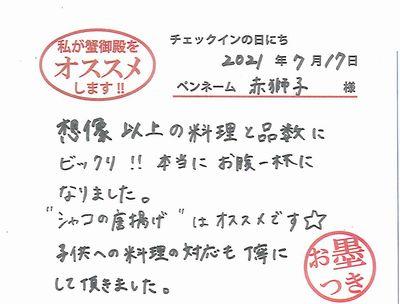 私が蟹御殿を
オススメ
します!!
チェックインの日にち
2021年7月17日
ペンネーム 赤獅子 様
想像以上の料理と品数に
ビックリ!! 本当にお腹一杯に
なりました。
"シャコの唐揚げ"はオススメです☆
子供への料理の対応も丁寧に
して頂きました。
お墨
つき